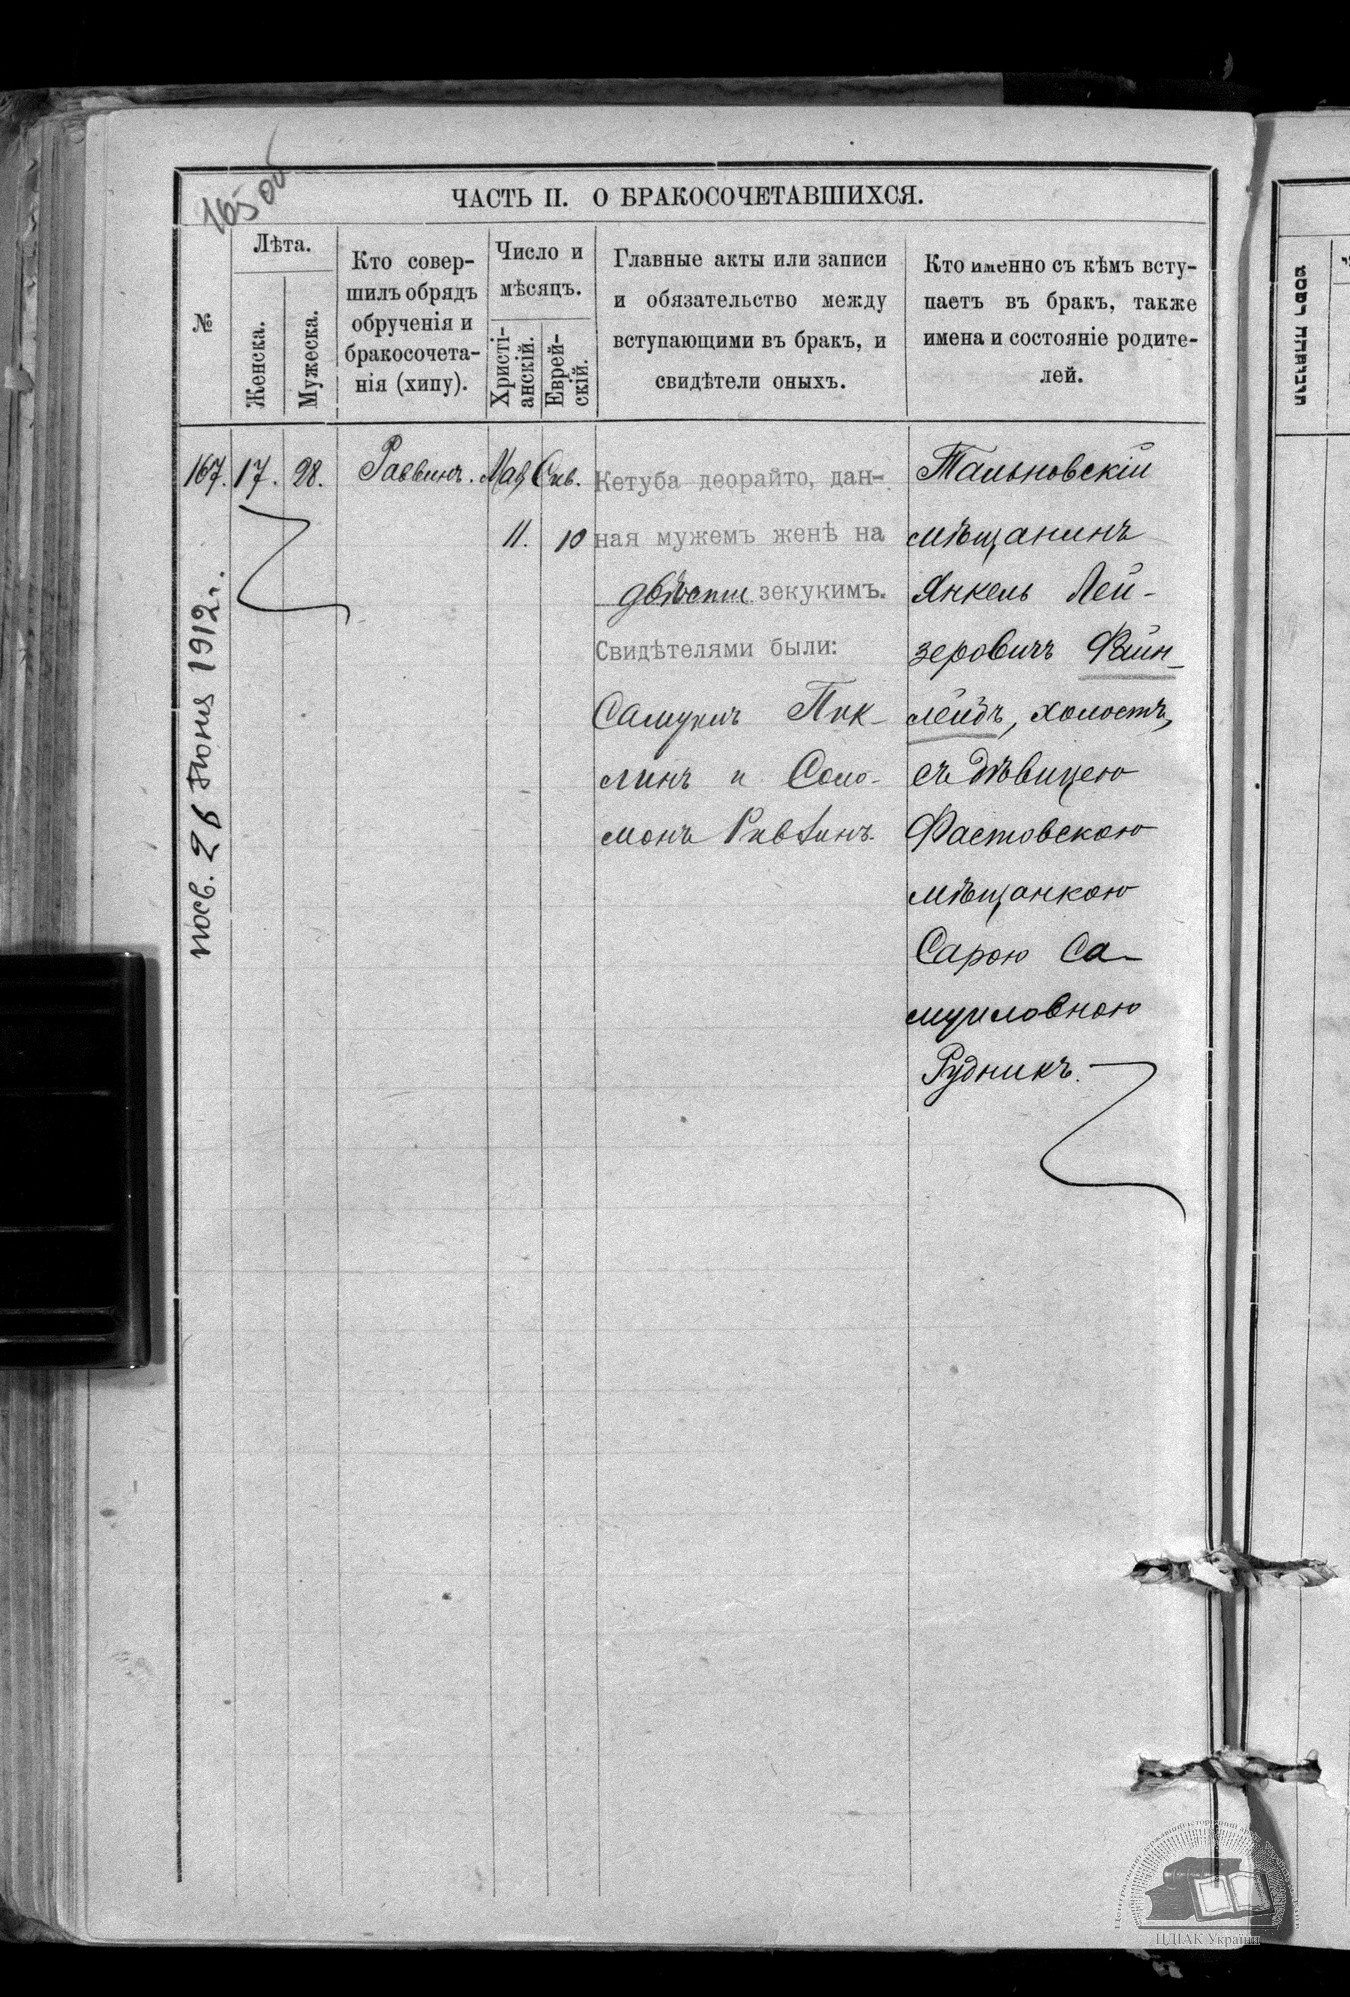 165 об
ЧАСТЬ II. О БРАКОСОЧЕТАВШИХСЯ.
№
Лѣта.
Женска.
Мужеска.
Кто совер-
шилъ обрядъ
обрученія и
бракосочета-
нія (хипу).
Число и
мѣсяцъ.
Христі-
анскій.
Еврей-
скій.
Главные акты или записи
и обязательство между
вступающими въ бракъ, и
свидѣтели оныхъ.
Кто именно съ кѣмъ всту-
паетъ въ бракъ, также
имена и состояніе родите-
лей.
167. 17. 28. Раввинъ. Мая Сив.
11. 10
Кетуба деорайто, дан-
ная мужемъ женѣ на
двѣсти зекукимъ.
Свидѣтелями были:
Самуилъ Пик-
линъ и Соло-
монъ Ривкинъ.
Тальновскій
мѣщанинъ
Янкель Лей-
зеровичъ Файн-
лейбъ, холостъ,
съ дѣвицею
Фастовскою
мѣщанкою
Сарою Са-
муиловною
Рудникъ.
посв. 26 Июня 1912 г.
ЦДІАК України